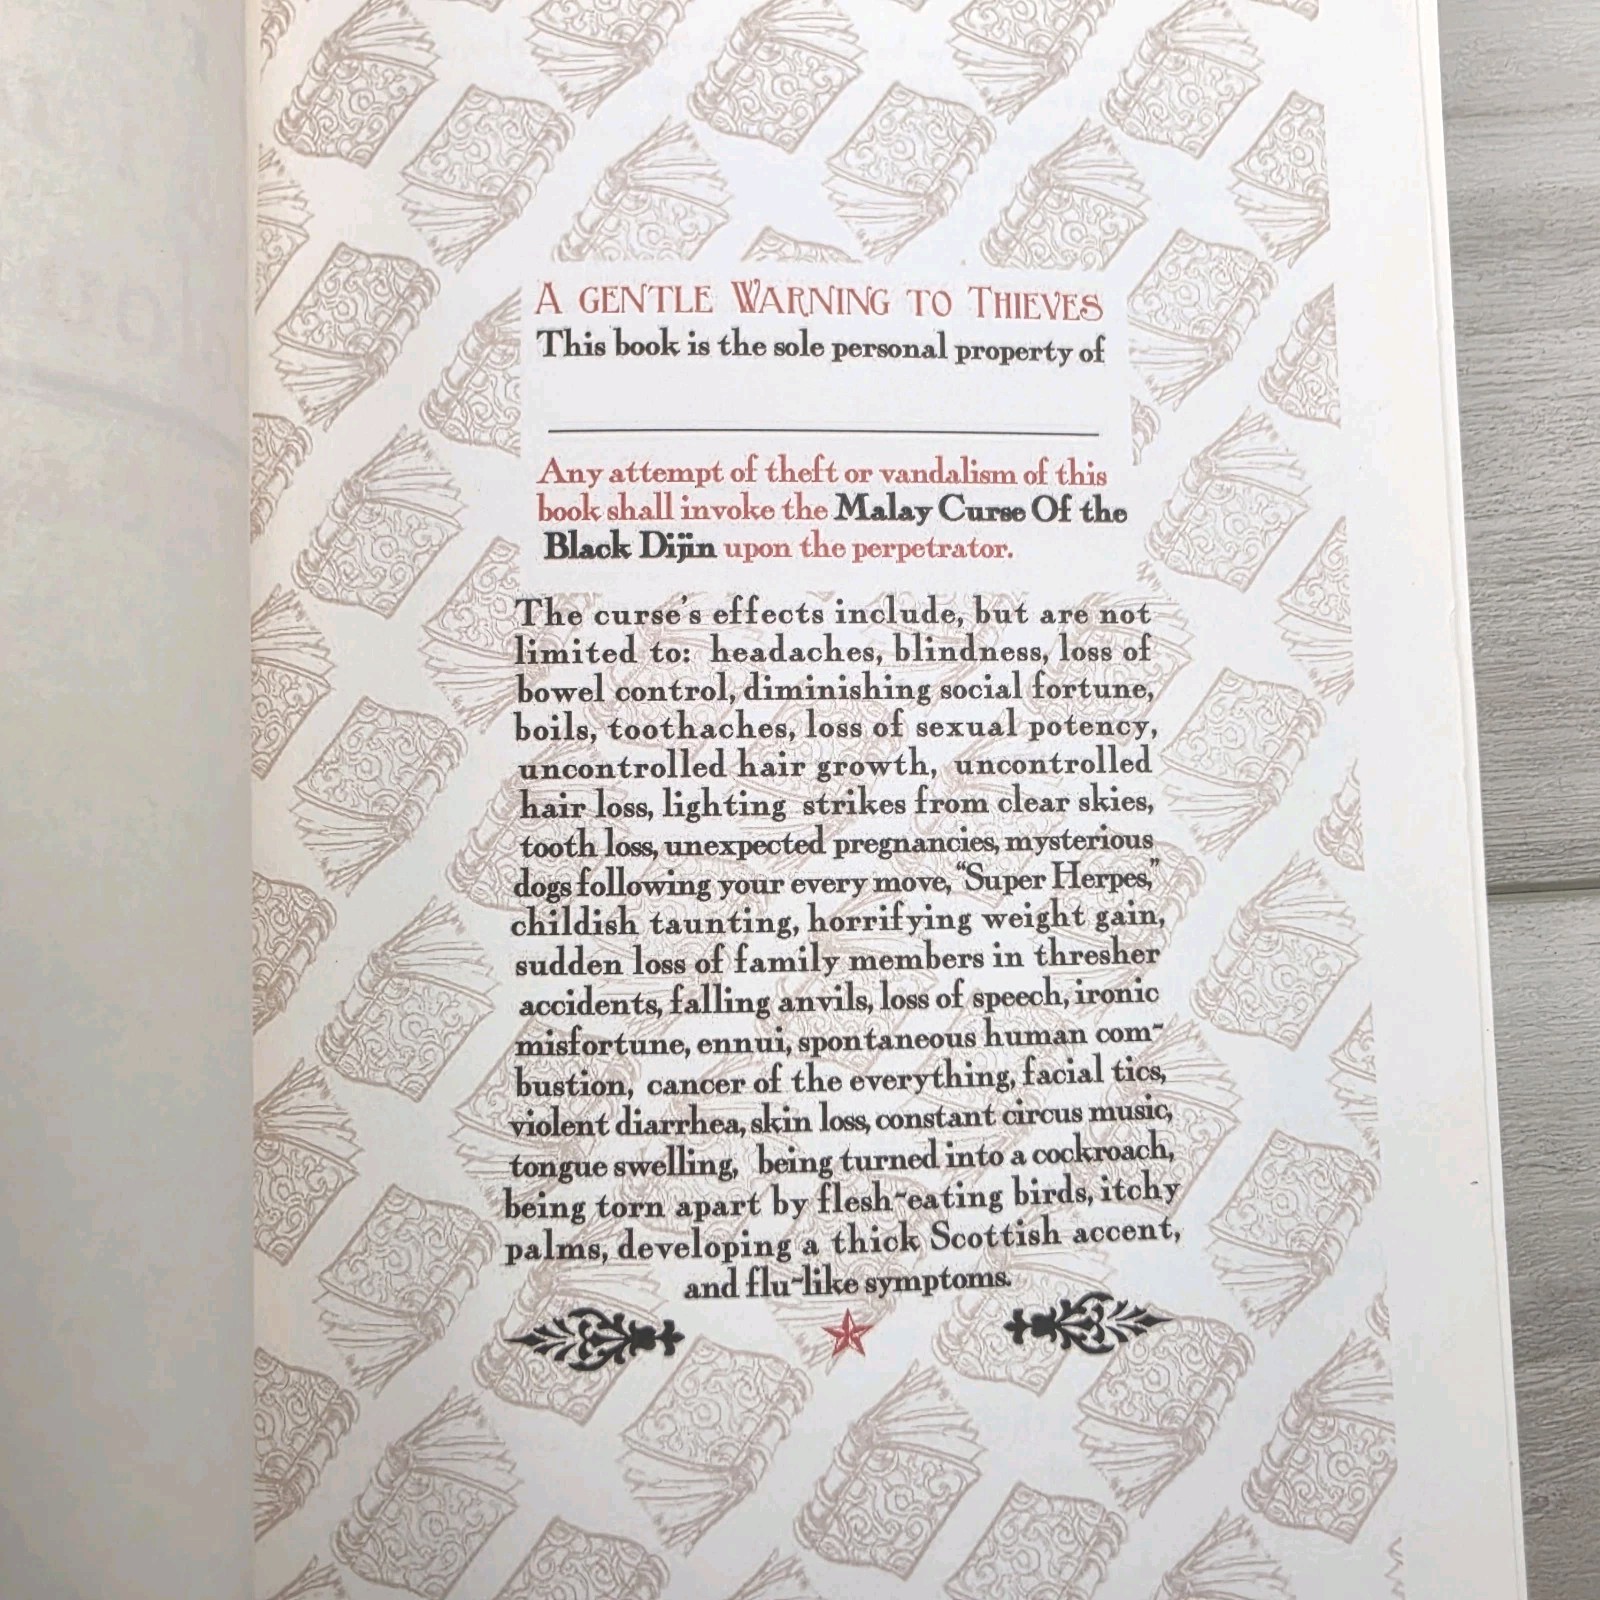 A GENTLE WARNING TO THIEVES
This book is the sole personal property of
Any attempt of theft or vandalism of this
book shall invoke the Malay Curse Of the
Black Dijin upon the perpetrator.
The curse's effects include, but are not
limited to: headaches, blindness, loss of
bowel control, diminishing social fortune,
boils, toothaches, loss of sexual potency,
uncontrolled hair growth, uncontrolled
hair loss, lighting strikes from clear skies,
tooth loss, unexpected pregnancies, mysterious
dogs following your every move, “Super Herpes,”
childish taunting, horrifying weight gain,
sudden loss of family members in thresher
accidents, falling anvils, loss of speech, ironic
misfortune, ennui, spontaneous human com~
bustion, cancer of the everything, facial tics,
violent diarrhea, skin loss, constant circus music,
tongue swelling, being turned into a cockroach,
being torn apart by flesh~eating birds, itchy
palms, developing a thick Scottish accent,
and flu~like symptoms.